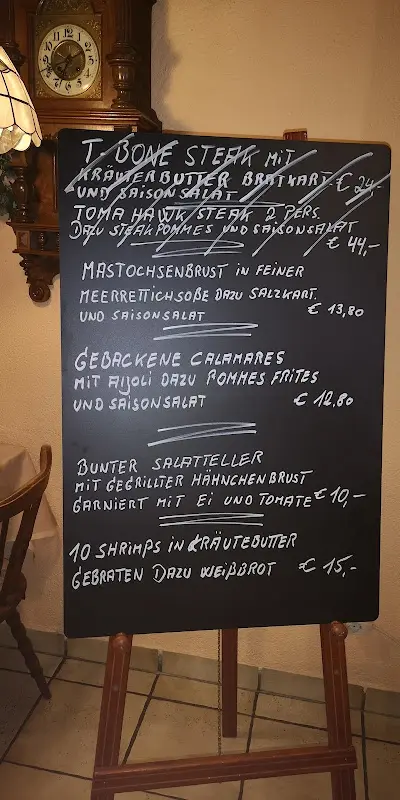 T. BONE STEAK MIT
KRÄUTERBUTTER BRATKART. € 24,-
UND SAISONSALAT
TOMA HAWK STEAK 2 PERS.
DAZU STEAKPOMMES UND SAISONSALAT
€ 44,-
MASTOCHSENBRUST IN FEINER
MEERRETTICHSOßE DAZU SALZKART.
UND SAISONSALAT € 13,80
GEBACKENE CALAMARES
MIT AIJOLI DAZU POMMES FRITES
UND SAISONSALAT € 12,80
BUNTER SALATTELLER
MIT GEGRILLTER HÄHNCHENBRUST
GARNIERT MIT EI UND TOMATE € 10,-
10 SHRIMPS IN KRÄUTEBUTTER
GEBRATEN DAZU WEIßBROT € 15,-